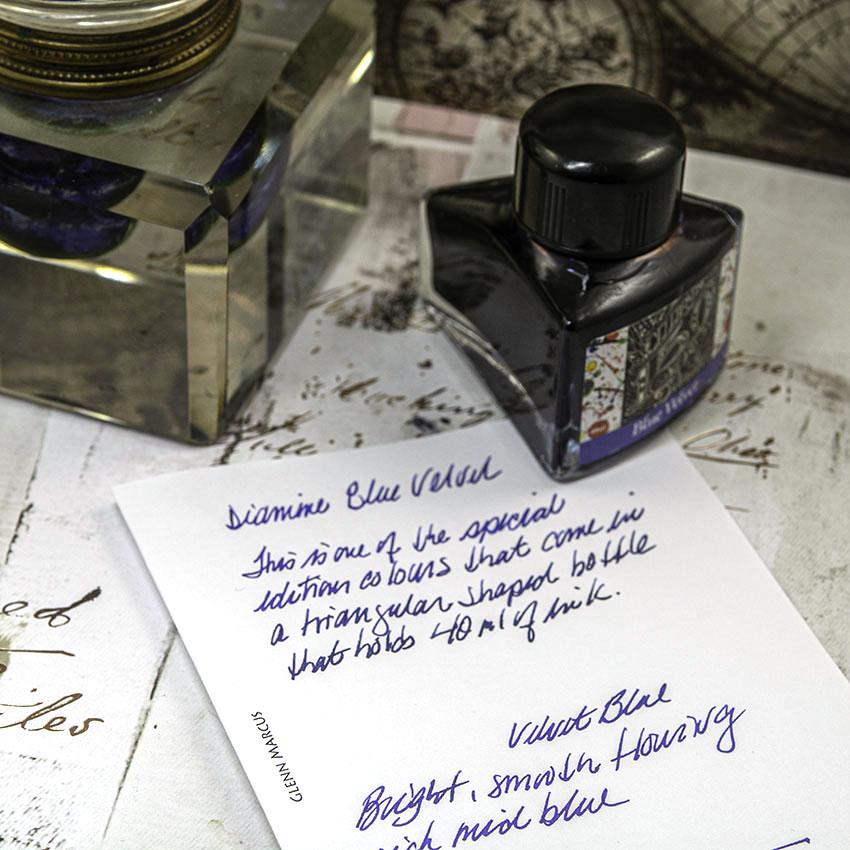 Blue Velvet
Diamine Blue Velvet
This is one of the special
edition colours that come in
a triangular shaped bottle
that holds 40 ml of ink.
GLENN MARCUS
Velvet Blue
Bright, smooth flowing
rich mid blue